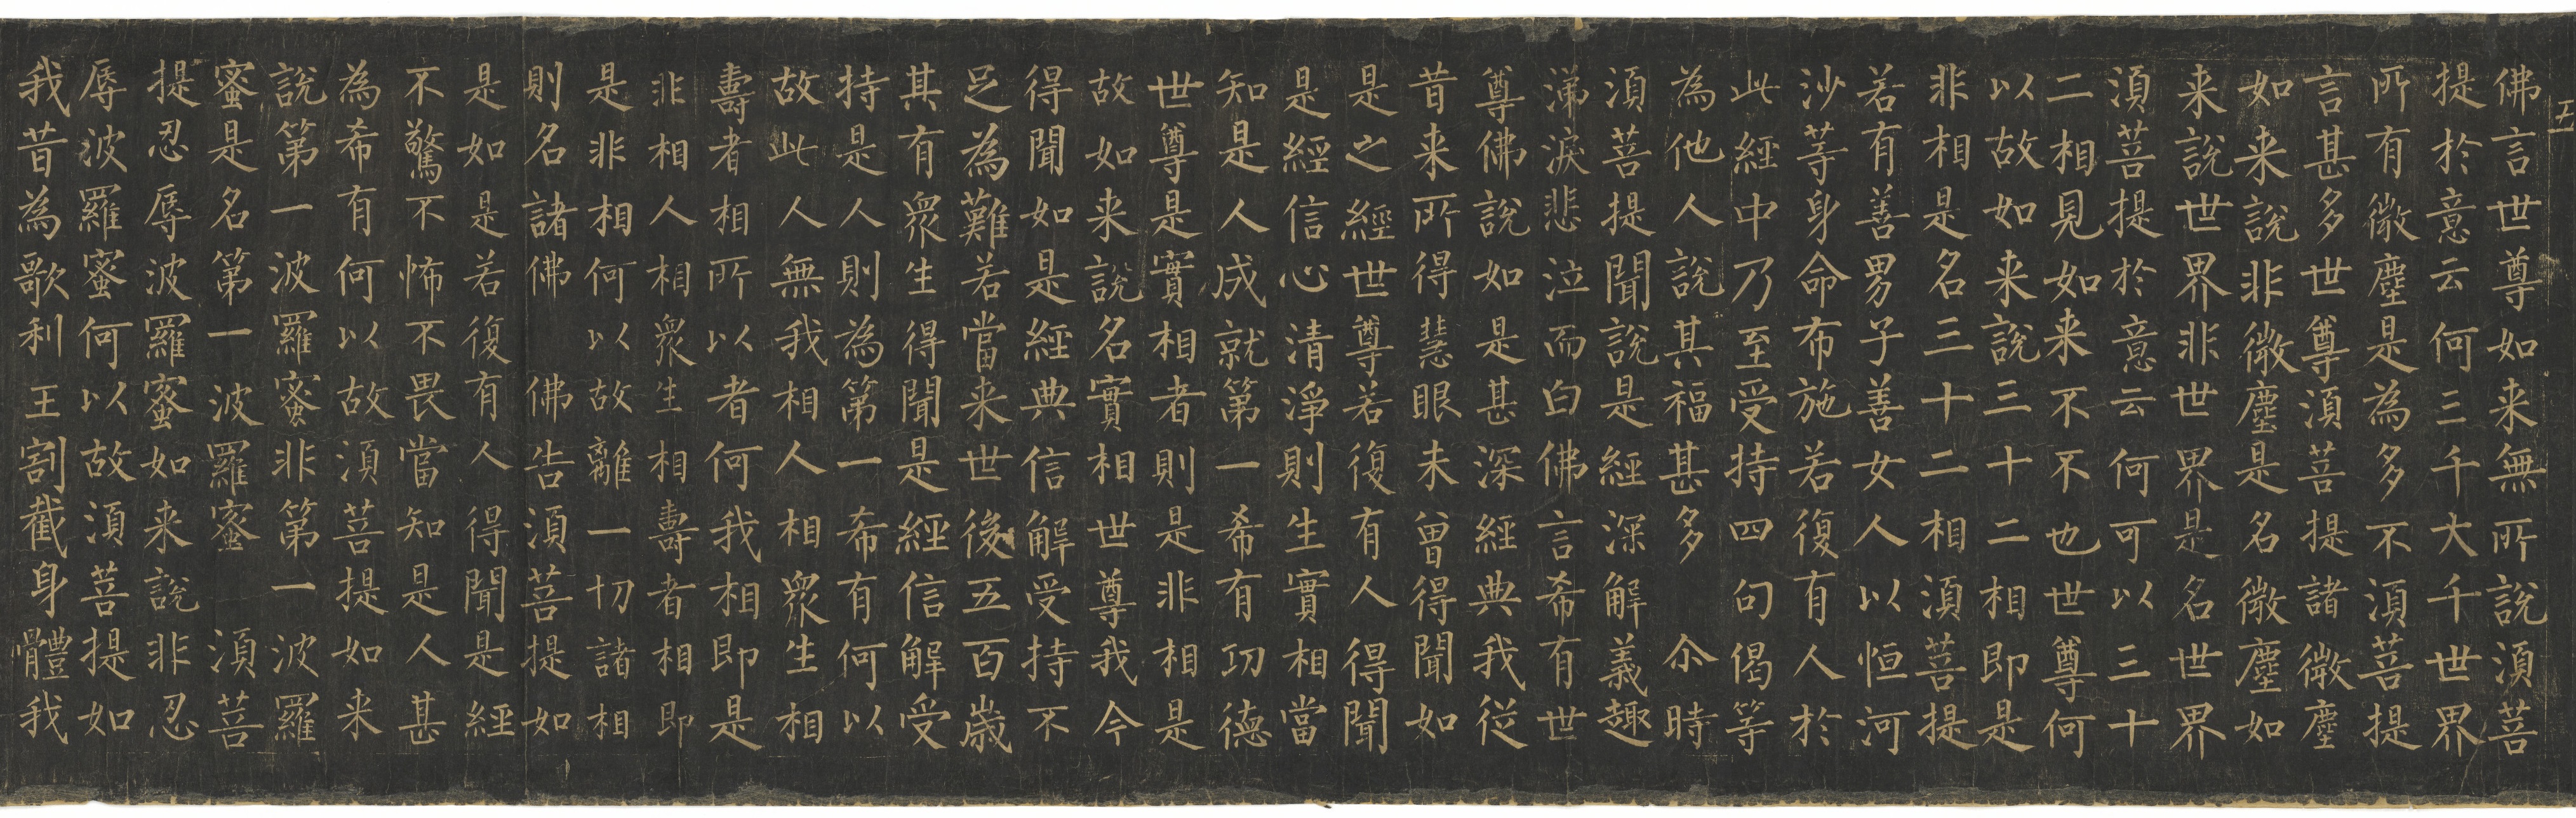 五
佛言世尊如来無所說須菩
提於意云何三千大千世界
所有微塵是為多不須菩提
言甚多世尊須菩提諸微塵
如来說非微塵是名微塵如
来說世界非世界是名世界
須菩提於意云何可以三十
二相見如来不不也世尊何
以故如来說三十二相即是
非相是名三十二相須菩提
若有善男子善女人以恒河
沙等身命布施若復有人於
此經中乃至受持四句偈等
為他人說其福甚多 尒時
須菩提聞說是經深解義趣
涕淚悲泣而白佛言希有世
尊佛說如是甚深經典我從
昔来所得慧眼未曾得聞如
是之經世尊若復有人得聞
是經信心清淨則生實相當
知是人成就第一希有功德
世尊是實相者則是非相是
故如来說名實相世尊我今
得聞如是經典信解受持不
足為難若當来世後五百歲
其有眾生得聞是經信解受
持是人則為第一希有何以
故此人無我相人相眾生相
壽者相所以者何我相即是
非相人相眾生相壽者相即
是非相何以故離一切諸相
則名諸佛 佛告須菩提如
是如是若復有人得聞是經
不驚不怖不畏當知是人甚
為希有何以故須菩提如来
說第一波羅蜜非第一波羅
蜜是名第一波羅蜜 須菩
提忍辱波羅蜜如来說非忍
辱波羅蜜何以故須菩提如
我昔為歌利王割截身體我